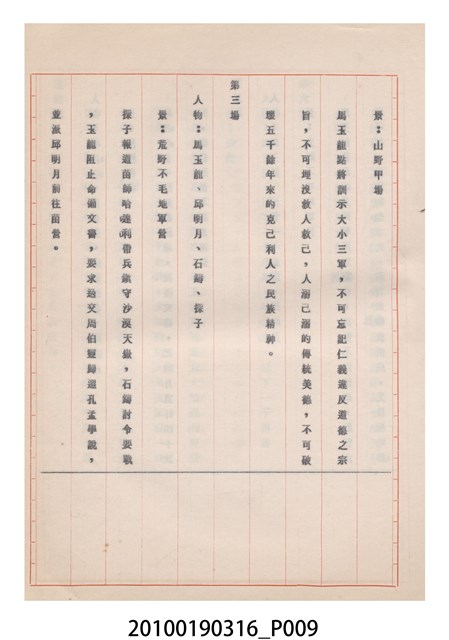 景：山野甲場
馬玉龍點將訓示大小三軍，不可忘記仁義違反道德之宗
旨，不可埋沒救人救己，人溺己溺的傳統美德，不可破
壞五千餘年來的克己利人之民族精神。
第三場
人物：馬玉龍、邱明月、石鑄、探子
景：荒野不毛地軍營
探子報道苗師哈達利帶兵鎮守沙漠天嶽，石鑄討令要戰
，玉龍阻止命備文書，要求迯交周伯靈歸還孔孟學說，
並派邱明月前往苗營。
20100190316_P009